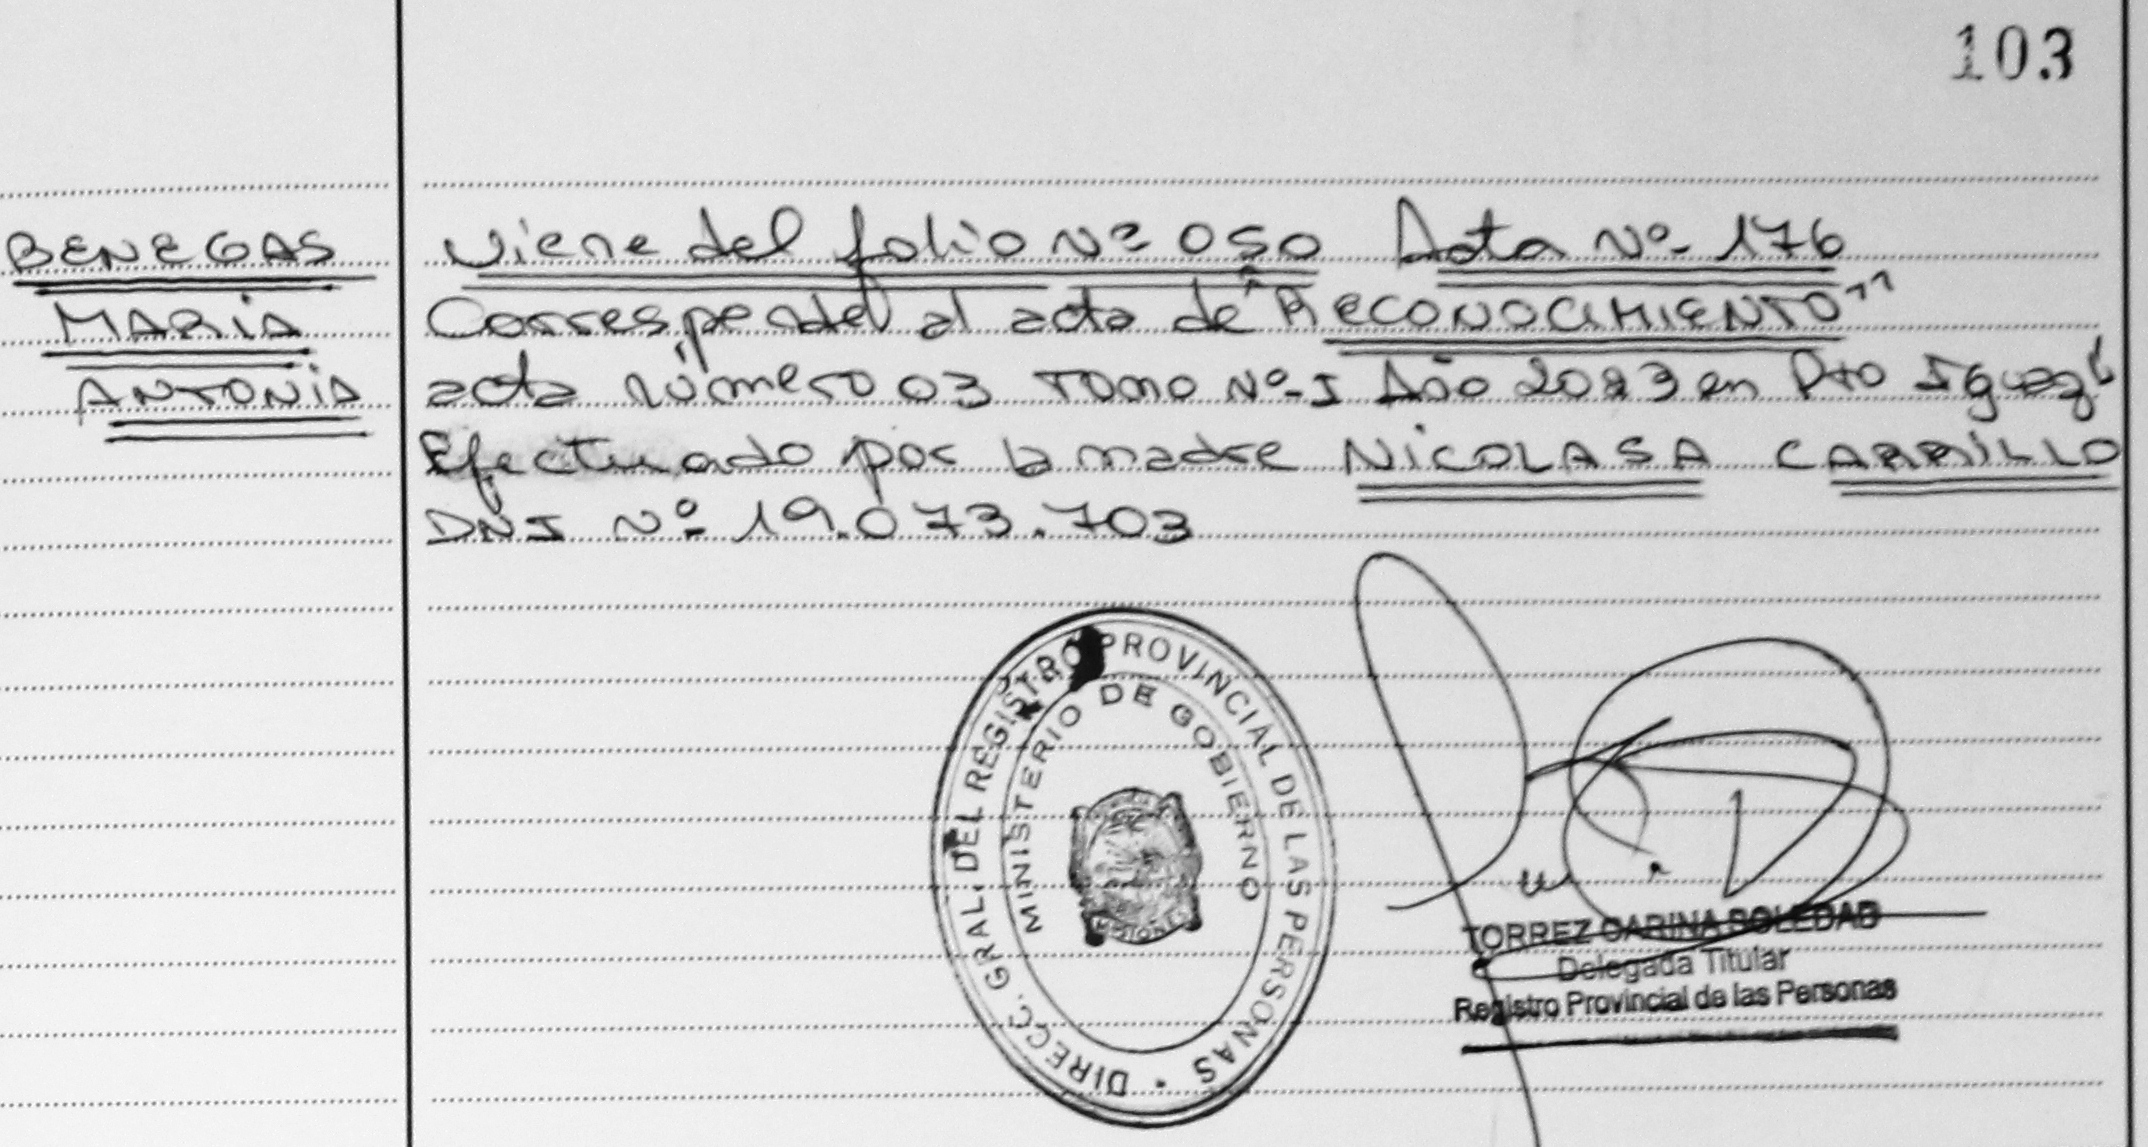 103
BENEGAS
MARIA
ANTONIA
Viene del folio Nº 050 Acta Nº 176
Corresponde al acta de "RECONOCIMIENTO"
acta número 03 Tomo Nº I Año 2023 en Pto Iguazú
Efectuado por la madre NICOLASA CARRILLO
DNI Nº 19.073.703
DIRECC. GRAL. DEL REGISTRO PROVINCIAL DE LAS PERSONAS
MINISTERIO DE GOBIERNO
MISIONES
TORREZ CARINA SOLEDAD
Delegada Titular
Registro Provincial de las Personas